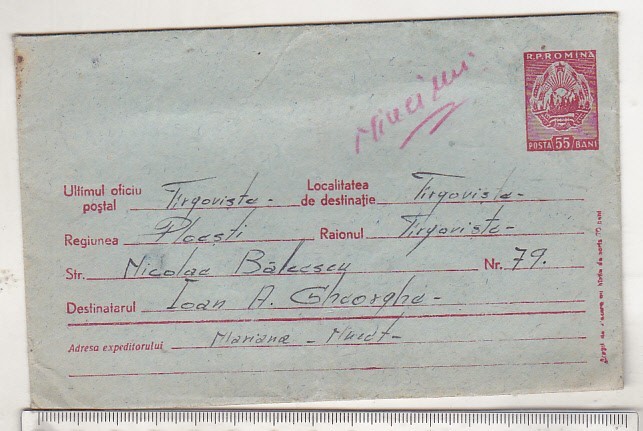 R.P.ROMINA
POSTA 55 BANI
Ultimul oficiu poştal Tîrgovişte - Localitatea de destinaţie Tîrgovişte -
Regiunea Ploeşti Raionul Tîrgovişte -
Str. Nicolae Bălcescu Nr. 79.
Destinatarul Ioan A. Gheorghe -
Adresa expeditorului Mariana -